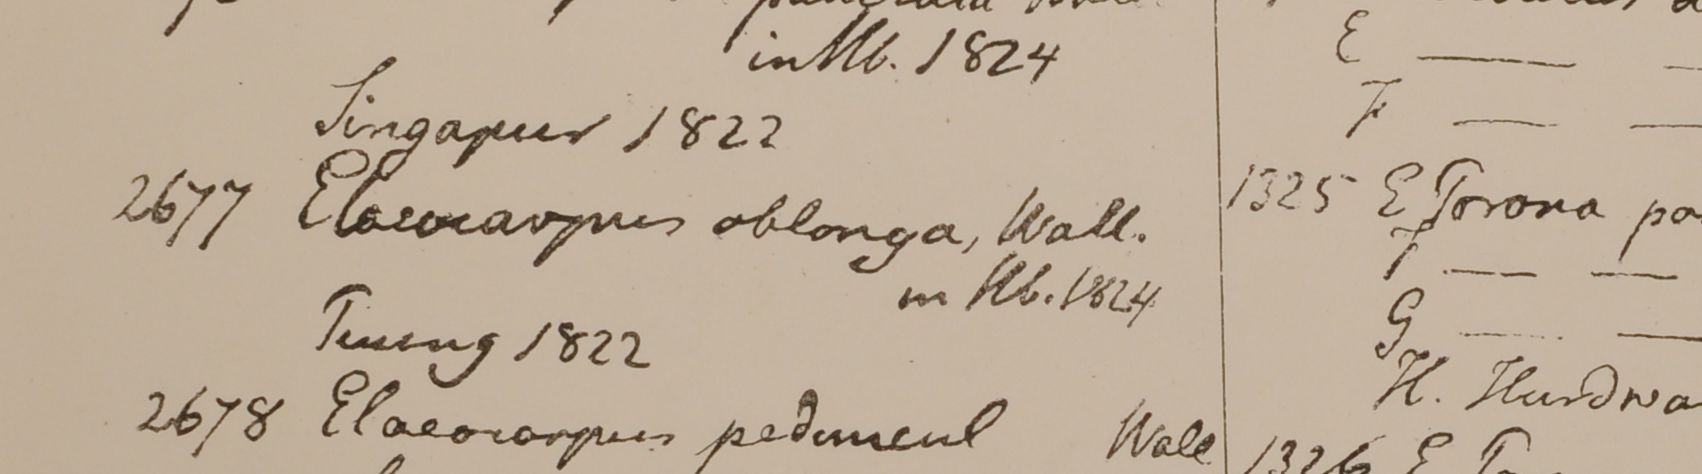 in Hb. 1824
Singapur 1822
2677 Elaeocarpus oblonga, Wall.
in Hb. 1824
1822
2678 Elaeocarpus peduncul Wall
E
F
1325 E
F
G
H. Hurdwa
1326 E